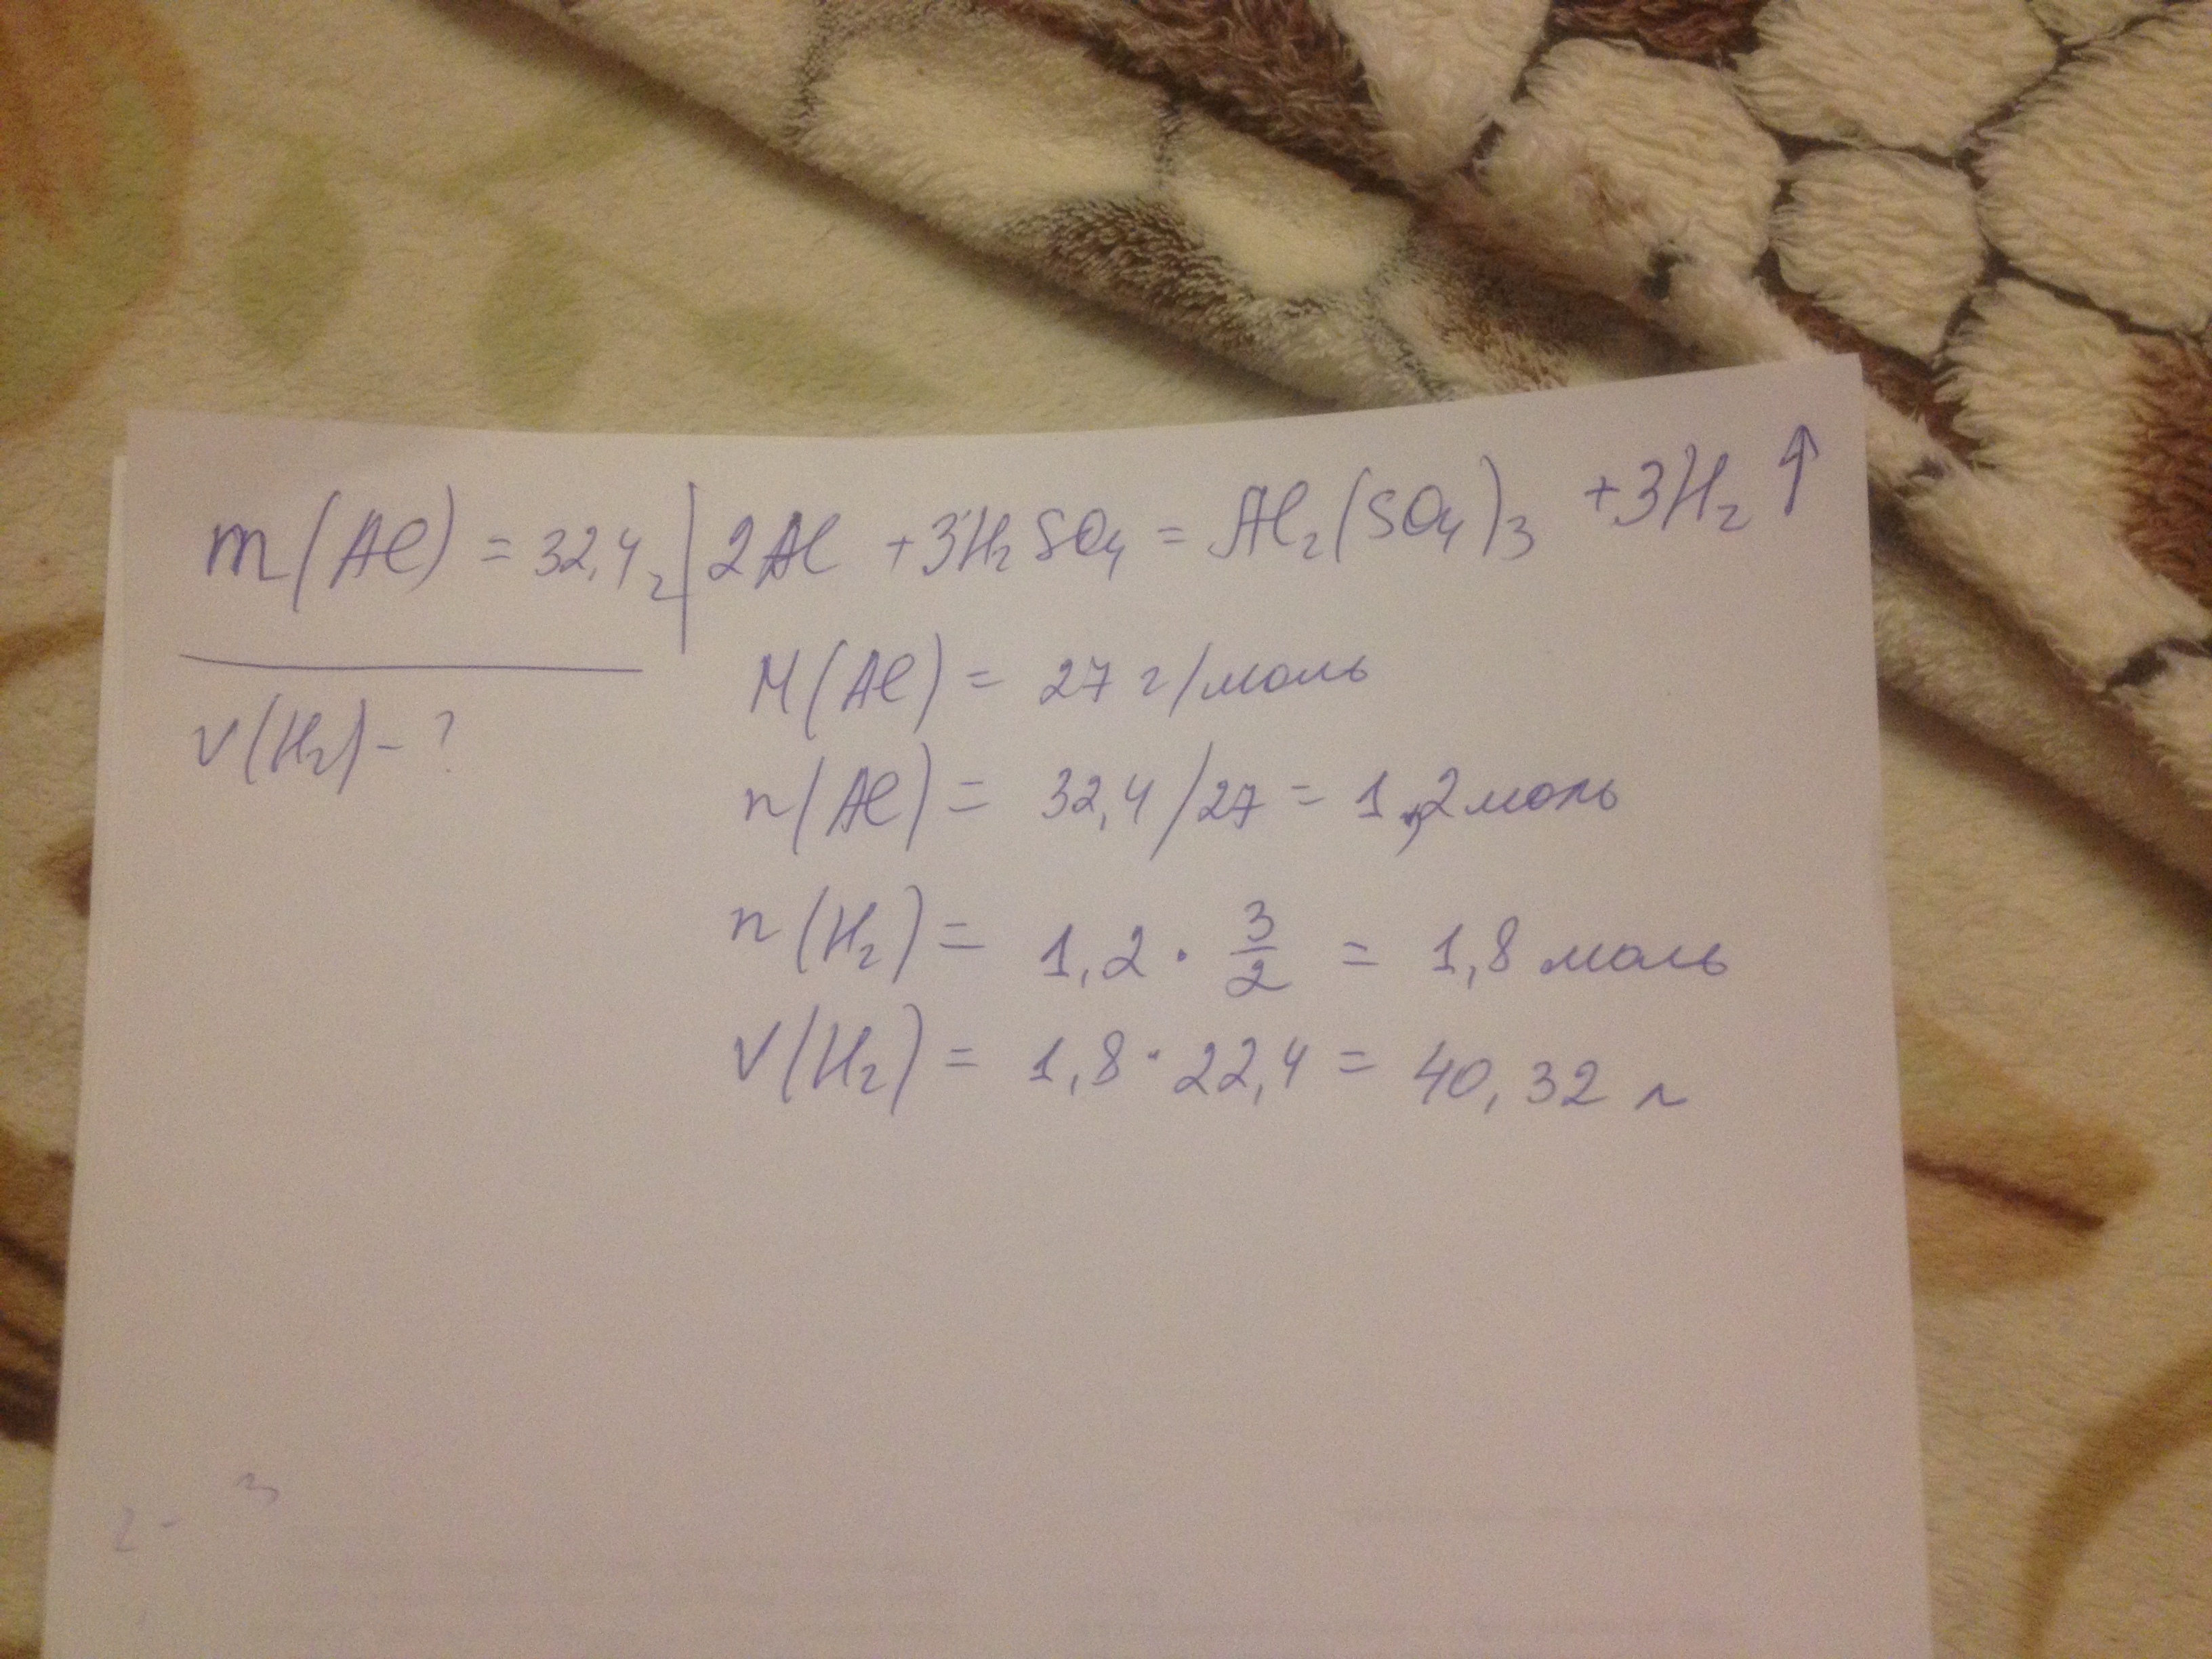 m(Al) = 32,4 г | 2Al + 3H₂SO₄ = Al₂(SO₄)₃ + 3H₂ ↑
V(H₂) - ?
M(Al) = 27 г/моль
n(Al) = 32,4/27 = 1,2 моль
n(H₂) = 1,2 · 3/2 = 1,8 моль
V(H₂) = 1,8 · 22,4 = 40,32 л